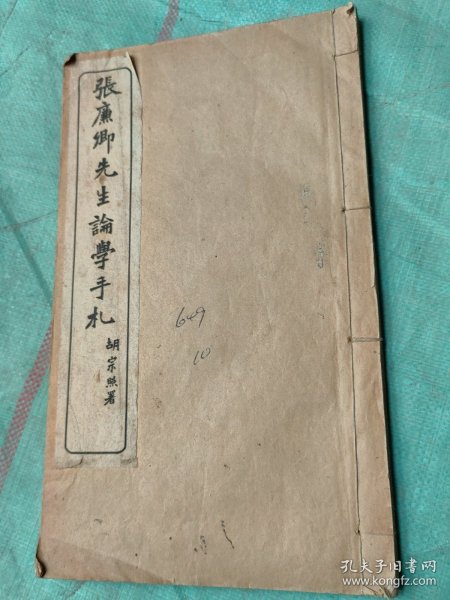 張廉卿先生論學手札
胡宗照署
649
10
孔夫子旧书网
www.kongfz.com